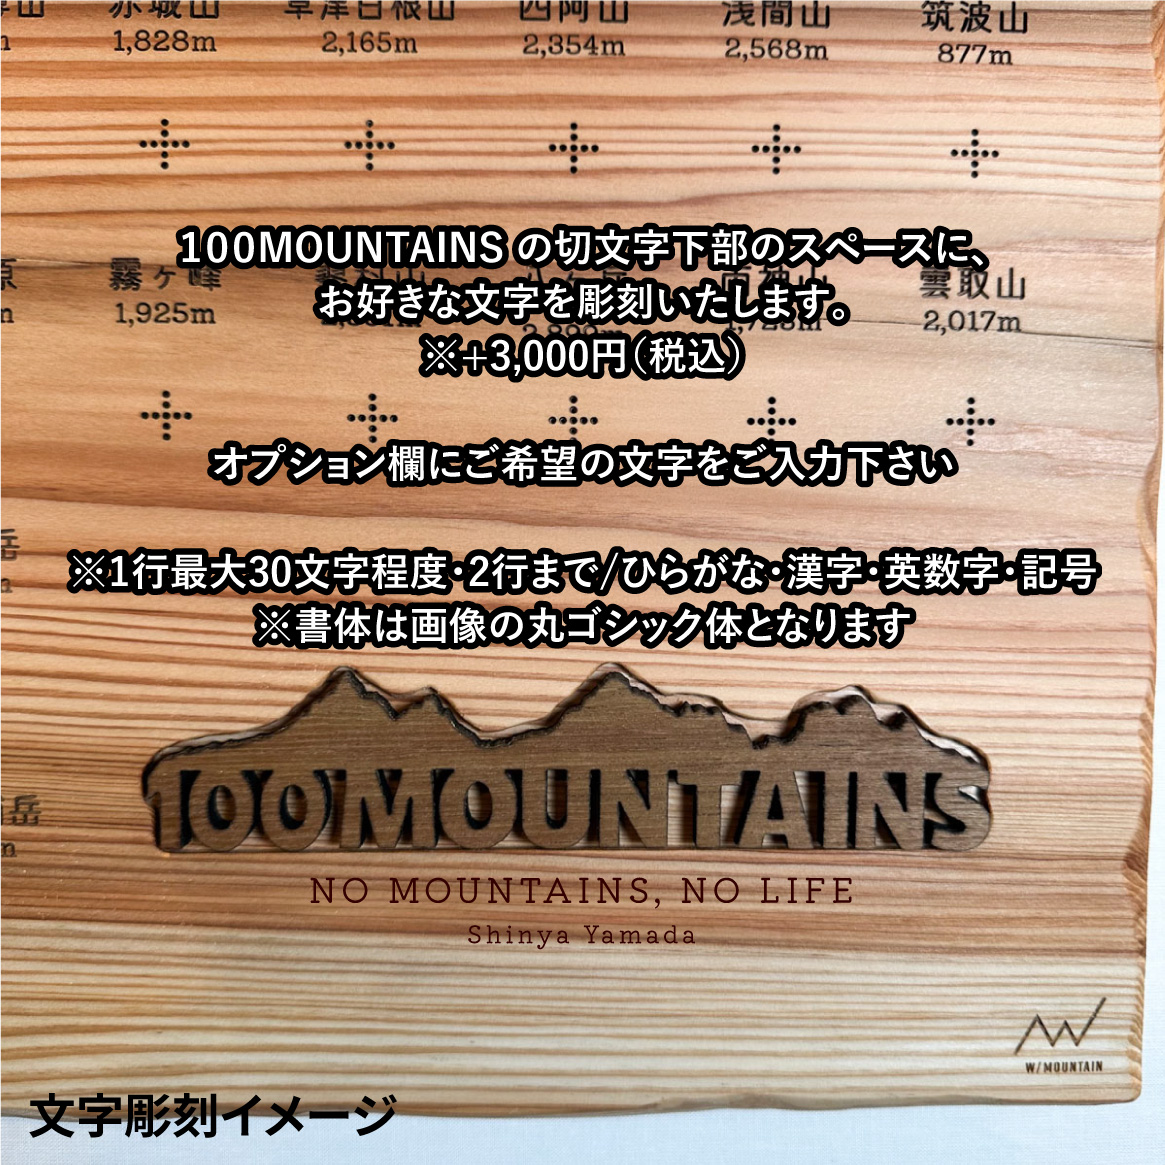 赤城山 草津白根山 四阿山 浅間山 筑波山
1,828m 2,165m 2,354m 2,568m 877m
100MOUNTAINS の切文字下部のスペースに、
霧ヶ峰 蓼科山 八ヶ岳 両神山 雲取山
お好きな文字を彫刻いたします。
1,925m 2,899m 1,723m 2,017m
※+3,000円（税込）
オプション欄にご希望の文字をご入力下さい
※1行最大30文字程度・2行まで/ひらがな・漢字・英数字・記号
※書体は画像の丸ゴシック体となります
100MOUNTAINS
NO MOUNTAINS, NO LIFE
Shinya Yamada
W/MOUNTAIN
文字彫刻イメージ